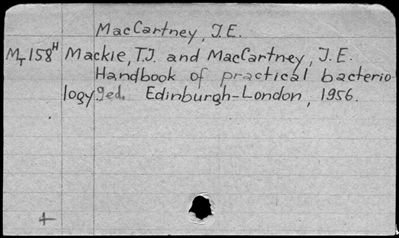 MacCartney, J.E.
MT 158H Mackie, T.J. and MacCartney, J.E.
Handbook of practical bacterio-
logy. 9ed. Edinburgh-London, 1956.
+